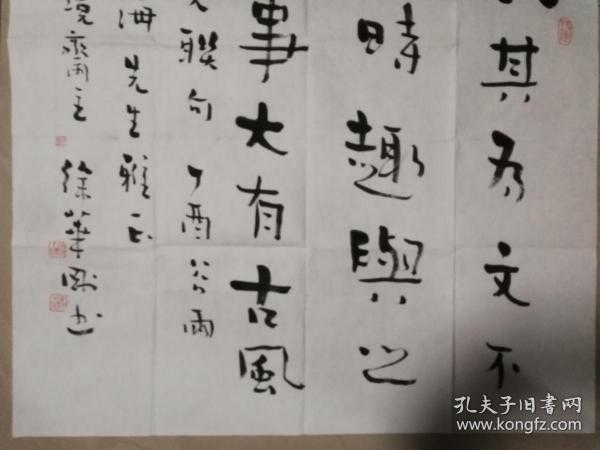 其为文不
時趣與之
事大有古風
聯句丁酉谷雨
海先生雅正
境齋主徐華剛书
孔夫子旧书网
www.kongfz.com